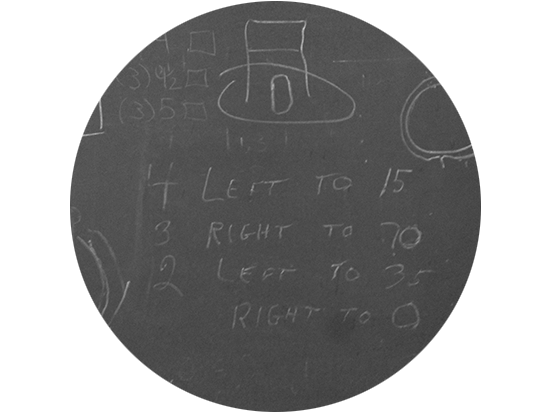 (3) 9½
(3) 5
4 LEFT TO 15
3 RIGHT TO 70
2 LEFT TO 35
RIGHT TO 0